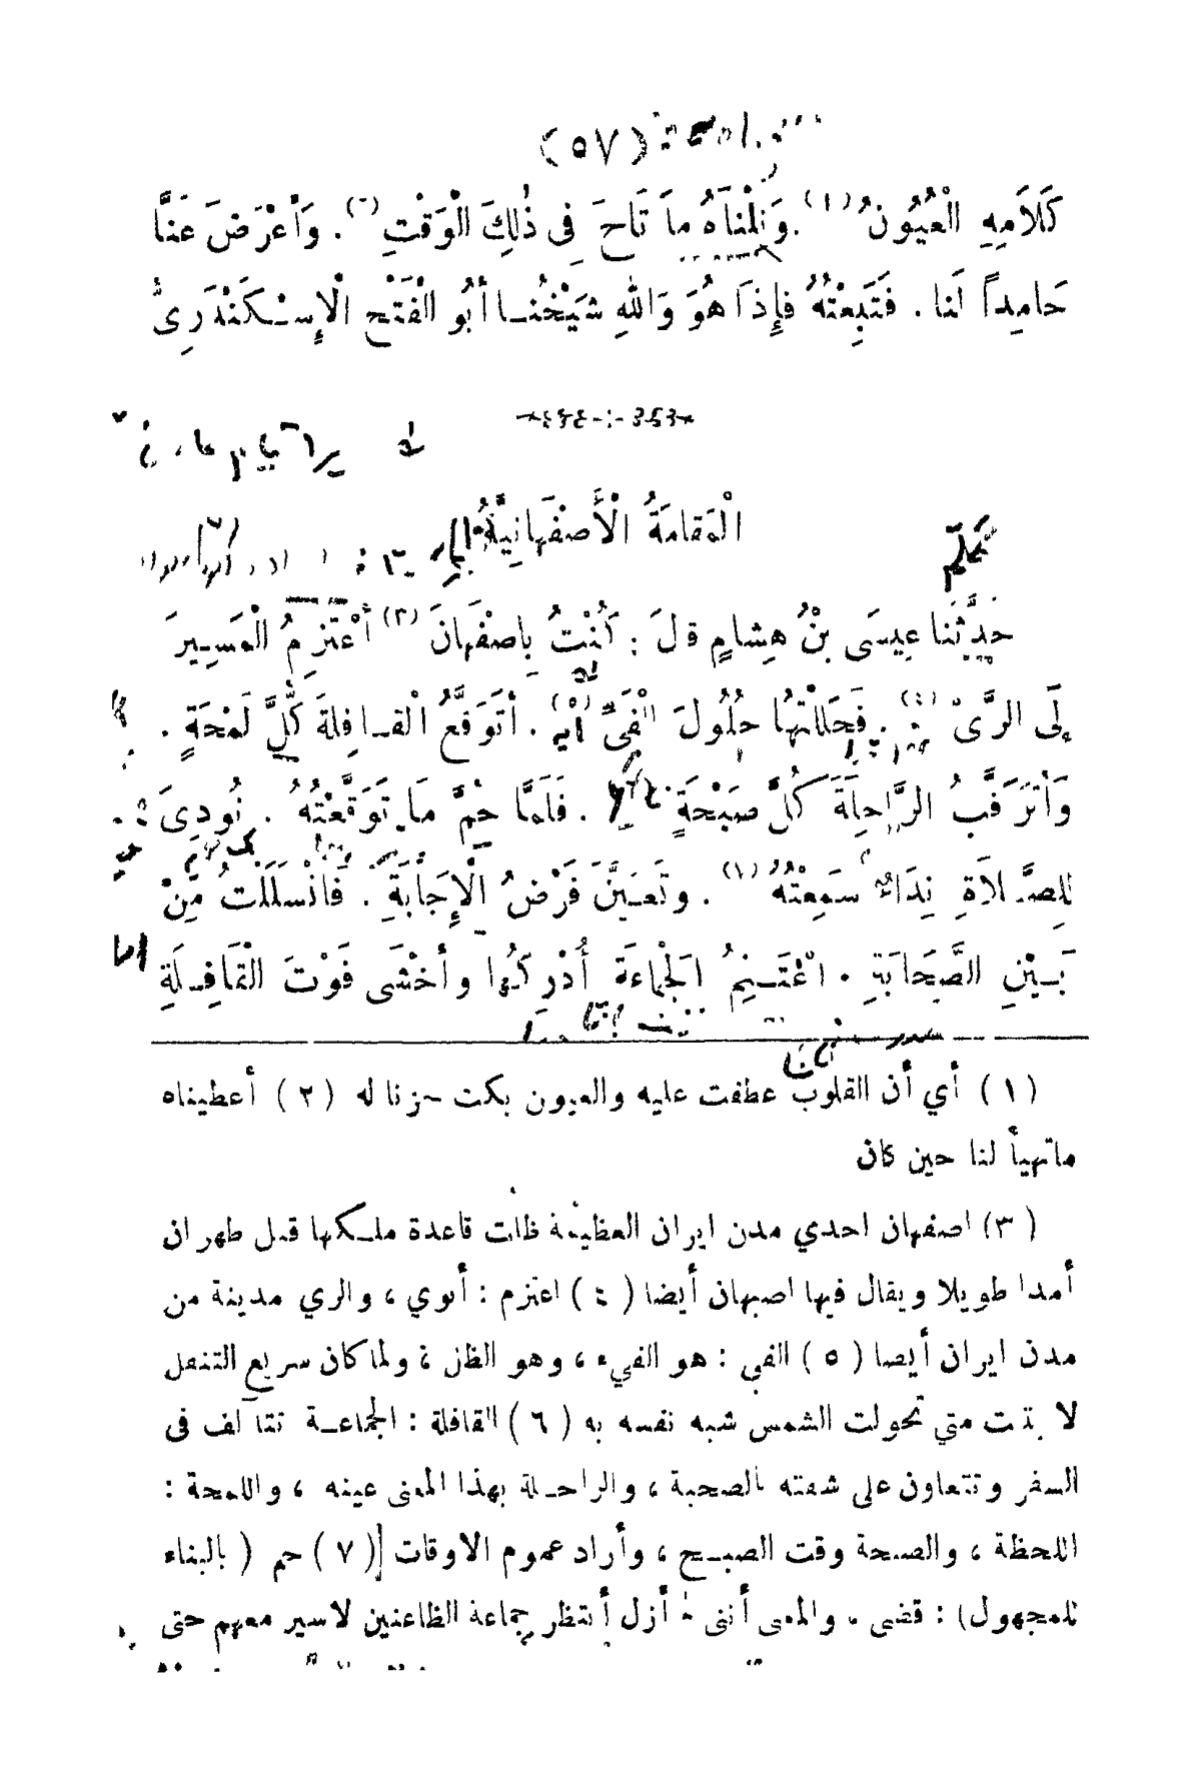 (٥٧)
كَلاَمِهِ الْعُيُونُ (١) . وَنِلْنَاهُ مَا تَاحَ فِى ذٰلِكَ الْوَقْتِ . وَأَعْرَضَ عَنَّا
حَامِداً لَنا . فَتَبِعْتُهُ فإِذَا هُوَ وَاللهِ شَيْخُنـا أبُو الْفَتْحِ الْإِسْـكَنْدَرِىُّ
الْمَقامَةُ الْأَصْفَهانِيَّةُ
حَدَّثَنا عِيسَى بْنُ هِشامٍ قالَ : كُنْتُ بِاصْفَهانَ (٣) أعْتَزِمُ الْمَسِيرَ
إِلَى الرَّىِّ (٤) . فَحَلَلْتُهَا حُلُولَ الْفَىِّ . أتَوَقَّعُ الْقـافِلةَ كُلَّ لَمْحَةٍ .
وَأتَرَقَّبُ الرَّاحِلَةَ كُلَّ صَبْحَةٍ . فَلَمَّا حُمَّ مَا تَوَقَّعْتُهُ . نُودِىَ
لِلصَّلاَةِ نِدَاءً سَمِعْتُهُ (١) . وتَعَيَّنَ فَرْضُ الْإِجَابَةِ . فَانْسَلَلْتُ مِنْ
بَـيْنِ الصَّحَابَةِ . اغْتَـنِمُ الْجَماعَةَ أُدْرِكُهَا وأخْشَى فَوْتَ الْقَافِـلَةِ
(١) أي أن القلوب عطفت عليه والعيون بكت حزنا له (٢) أعطيناه
ماتهيأ لنا حين كان
(٣) اصفهان احدي مدن ايران العظيمة ظلت قاعدة ملـكها قبل طهران
أمدا طويلا ويقال فيها اصبهان أيضا (٤) اعتزم : أنوي ، والري مدينة من
مدن ايران أيضا (٥) الفي : هو الفيء ، وهو الظل ، ولما كان سريع التنقل
لا يثبت متي تحولت الشمس شبه نفسه به (٦) القافلة : الجماعـة تتآلف فى
السفر وتتعاون على شقته بالصحبة ، والراحـلة بهذا المعنى عينه ، واللمحة :
اللحظة ، والصبحة وقت الصبـح ، وأراد عموم الاوقات (٧) حم ( بالبناء
للمجهول) : قضى ، والمعنى أننى لم أزل أنتظر جماعة الظاعنين لاسير معهم حتى